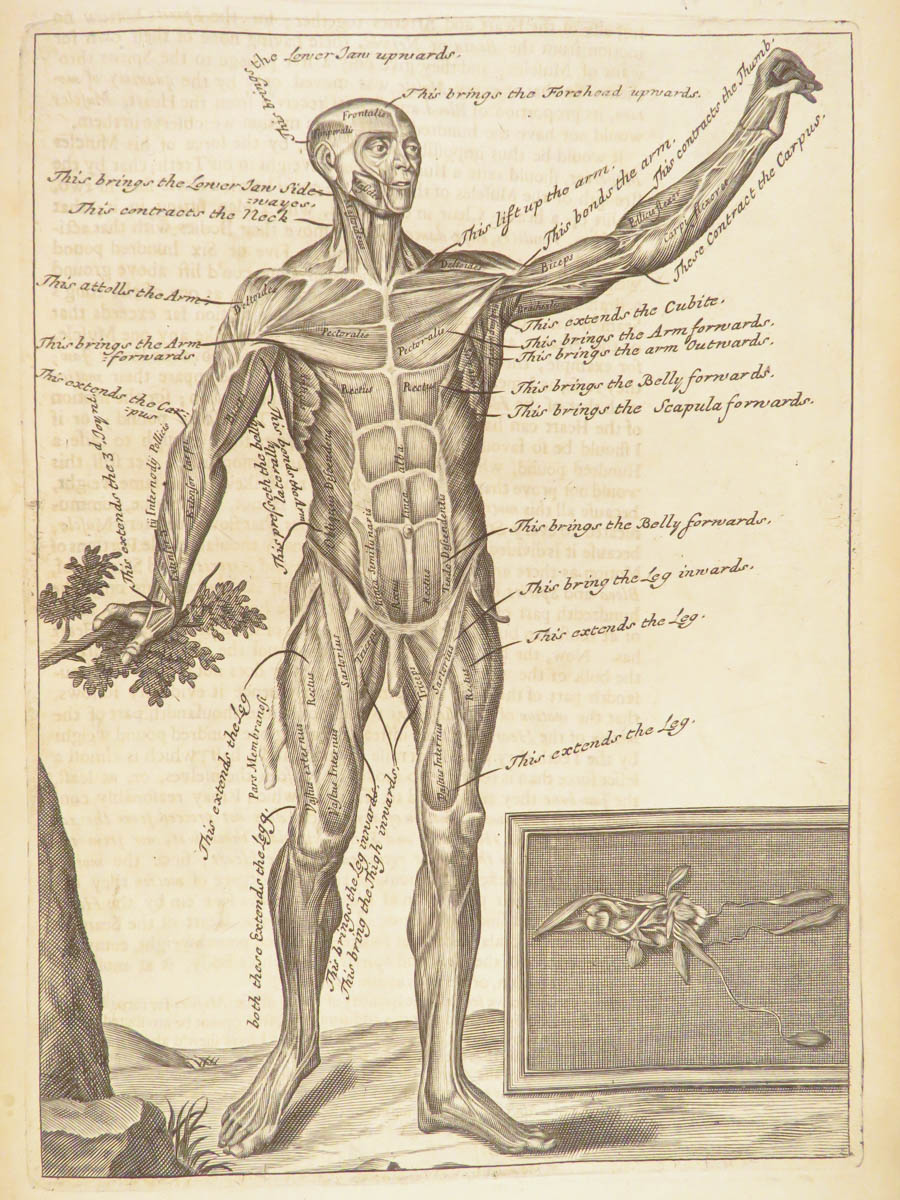 This brings the Lower Jaw upwards.
This brings the Forehead upwards.
Frontalis
Temporalis
This brings the Lower Jaw Side
wayes.
This contracts the Neck
This lift up the arm.
This bends the arm.
This contracts the Thumb.
These Contract the Carpus.
Deltoides
Biceps
Pollicis flexor
carpi flexores
Brachialis
This attolls the Arm
Deltoides
Pectoralis
Pectoralis
This extends the Cubite.
This brings the Arm forwards.
This brings the arm Outwards.
This brings the Arm
forwards
Rectus
Rectus
This brings the Belly forwards.
This brings the Scapula forwards.
This extends the Car-
pus
This extends the 3d Joynt
iii Internodij Pollicis
Extensor carpi
This presseth the belly
laterally
Obliquus Descendens
Linea
alba
Linea Semilunaris
Rectus
Rectus
This brings the Belly forwards.
This bring the Leg inwards.
This extends the Leg.
Sartorius
Rectus
Triceps
Triceps
Sartorius
Rectus
Pars Membranosi
Vastus externus
Vastus Internus
Vastus Internus
This extends the Leg
This extends the Leg.
both these Extends the Legg
This brings the Leg inwards
This bring the Thigh inwards.